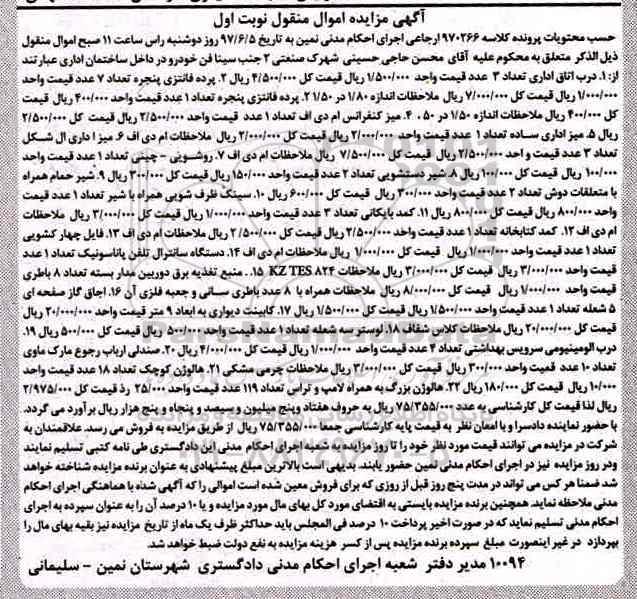 آگهی مزایده اموال منقول نوبت اول
حسب محتویات پرونده کلاسه ۹۷۰۲۶۶ ارجاعی اجرای احکام مدنی نمین به تاریخ ۹۷/۶/۵ روز دوشنبه راس ساعت ۱۱ صبح اموال منقول
ذیل الذکر متعلق به محکوم علیه آقای محسن حاجی حسینی شهرک صنعتی ۲ جنب سینا فن خودرو در داخل ساختمان اداری عبارتند
از: ۱. درب اتاق اداری تعداد ۳ عدد قیمت واحد ۱/۵۰۰/۰۰۰ ریال قیمت کل ۴/۵۰۰/۰۰۰ ریال ۲. پرده فانتزی پنجره تعداد ۷ عدد قیمت واحد
۱/۰۰۰/۰۰۰ ریال قیمت کل ۷/۰۰۰/۰۰۰ ریال ملاحظات اندازه ۱/۸۰ در ۱/۵۰ ۳. پرده فانتزی پنجره تعداد ۱ عدد قیمت واحد ۴۰۰/۰۰۰ ریال قیمت
کل ۴۰۰/۰۰۰ ریال ملاحظات اندازه ۱/۵۰ در ۵۰ . ۴. میز کنفرانس ام دی اف تعداد ۱ عدد قیمت واحد ۲/۵۰۰/۰۰۰ ریال قیمت کل ۲/۵۰۰/۰۰۰
ریال ۵. میز اداری ساده تعداد ۱ عدد قیمت واحد ۲/۰۰۰/۰۰۰ ریال قیمت کل ۲/۰۰۰/۰۰۰ ریال ملاحظات ام دی اف ۶. میز اداری ال شکل
تعداد ۳ عدد قیمت واحد ۲/۵۰۰/۰۰۰ ریال قیمت کل ۷/۵۰۰/۰۰۰ ریال ملاحظات ام دی اف ۷. روشویی - چینی تعداد ۱ عدد قیمت واحد
۱۰۰/۰۰۰ ریال قیمت کل ۱۰۰/۰۰۰ ریال ۸. شیر دستشویی تعداد ۲ عدد قیمت واحد ۱۵۰/۰۰۰ ریال قیمت کل ۳۰۰/۰۰۰ ریال ۹. شیر حمام همراه
با متعلقات دوش تعداد ۲ عدد قیمت واحد ۳۰۰/۰۰۰ ریال قیمت کل ۶۰۰/۰۰۰ ریال ۱۰. سینک ظرف شویی همراه با شیر تعداد ۱ عدد قیمت
واحد ۸۰۰/۰۰۰ ریال قیمت کل ۸۰۰/۰۰۰ ریال ۱۱. کمد بایگانی تعداد ۳ عدد قیمت واحد ۱/۰۰۰/۰۰۰ ریال قیمت کل ۳/۰۰۰/۰۰۰ ریال ملاحظات
ام دی اف ۱۲. کمد کتابخانه تعداد ۱ عدد قیمت واحد ۲/۵۰۰/۰۰۰ ریال قیمت کل ۲/۵۰۰/۰۰۰ ریال ملاحظات ام دی اف ۱۳. فایل چهار کشویی
تعداد ۱ عدد قیمت واحد ۱/۰۰۰/۰۰۰ ریال قیمت کل ۱/۰۰۰/۰۰۰ ریال ملاحظات ام دی اف ۱۴. دستگاه سانترال تلفن پاناسونیک تعداد ۱ عدد
قیمت واحد ۳/۰۰۰/۰۰۰ ریال قیمت کل ۳/۰۰۰/۰۰۰ ریال ملاحظات KZ TES ۸۲۴ ۱۵. . منبع تغذیه برق دوربین مدار بسته تعداد ۸ باطری
قیمت واحد ۱/۰۰۰/۰۰۰ ریال قیمت کل ۸/۰۰۰/۰۰۰ ریال ملاحظات همراه با ۸ عدد باطری سانی و جعبه فلزی آن ۱۶. اجاق گاز صفحه ای
۵ شعله تعداد ۱ عدد قیمت واحد ۱/۵۰۰/۰۰۰ ریال قیمت کل ۱/۵۰۰/۰۰۰ ریال ۱۷. کابینت دیواری به ابعاد ۹ متر قیمت واحد ۲۰/۰۰۰/۰۰۰ ریال
قیمت کل ۲۰/۰۰۰/۰۰۰ ریال ملاحظات کلاس شفاف ۱۸. لوستر سه شعله تعداد ۱ عدد قیمت واحد ۵۰۰/۰۰۰ ریال قیمت کل ۵۰۰/۰۰۰ ریال ۱۹.
درب الومینیومی سرویس بهداشتی تعداد ۴ عدد قیمت واحد ۱/۰۰۰/۰۰۰ ریال قیمت کل ۴/۰۰۰/۰۰۰ ریال ۲۰. صندلی ارباب رجوع مارک ماوی
تعداد ۱۰ عدد قیمت واحد ۳۰۰/۰۰۰ ریال قیمت کل ۳/۰۰۰/۰۰۰ ریال ملاحظات چرمی مشکی ۲۱. هالوژن کوچک تعداد ۱۸ عدد قیمت واحد
۱۰/۰۰۰ ریال قیمت کل ۱۸۰/۰۰۰ ریال ۲۲. هالوژن بزرگ به همراه لامپ و تراس تعداد ۱۱۹ عدد قیمت واحد ۲۵/۰۰۰ رذ قیمت کل ۲/۹۷۵/۰۰۰
ریال لذا قیمت کل کارشناسی به عدد ۷۵/۳۵۵/۰۰۰ ریال به حروف هفتاد وپنج میلیون وسیصد و پنجاه و پنج هزار ریال برآورد می گردد.
با حضور نماینده دادسرا و با امعان نظر به قیمت پایه کارشناسی جمعا ۷۵/۳۵۵/۰۰۰ ریال از طریق مزایده به فروش می رسد. علاقمندان به
شرکت در مزایده می توانند قیمت مورد نظر خود را تا روز مزایده به شعبه اجرای احکام مدنی این دادگستری طی نامه کتبی تسلیم نمایند
ودر روز مزایده نیز در اجرای احکام مدنی نمین حضور یابند. بدیهی است بالاترین مبلغ پیشنهادی به عنوان برنده مزایده شناخته خواهد
شد ضمنا هر کس می تواند در مدت پنج روز قبل از روزی که برای فروش معین شده است اموالی را که آگهی شده با هماهنگی اجرای احکام
مدنی ملاحظه نماید. همچنین برنده مزایده بایستی به اقتضای مورد کل بهای مال مورد مزایده و یا ۱۰ درصد آن را به عنوان سپرده به اجرای
احکام مدنی تسلیم نماید که در صورت اخیر پرداخت ۱۰ درصد فی المجلس باید حداکثر ظرف یک ماه از تاریخ مزایده نیز بقیه بهای مال را
بپردازد در غیر اینصورت مبلغ سپرده برنده مزایده پس از کسر هزینه مزایده به نفع دولت ضبط خواهد شد.
۱۰۰۹۴ مدیر دفتر شعبه اجرای احکام مدنی دادگستری شهرستان نمین - سلیمانی